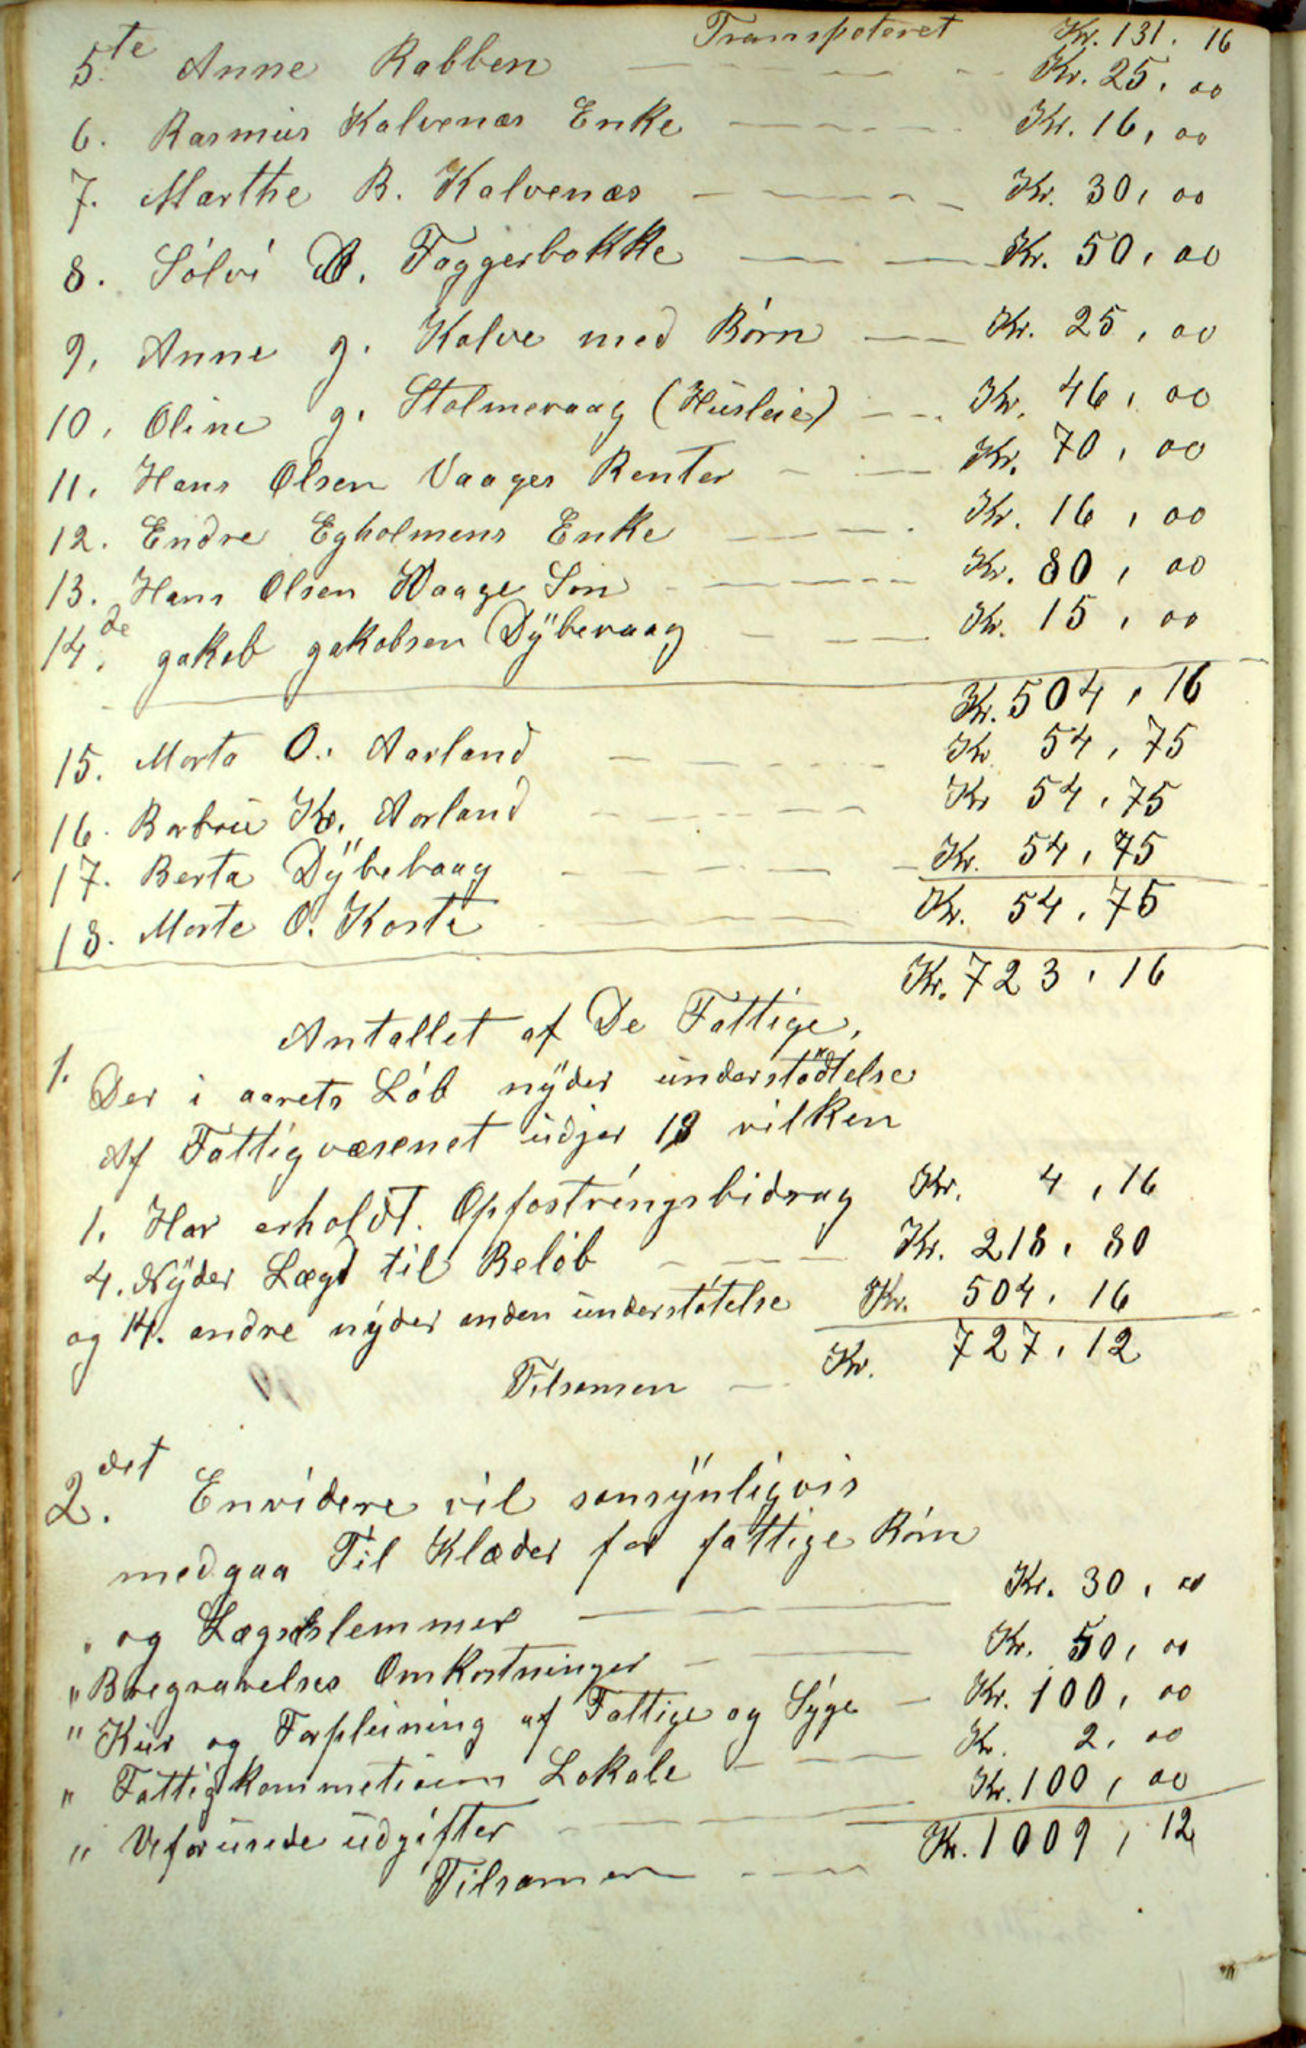 Transpoteret Kr. 131. 16
5.te Anne Rabben Kr. 25, 00
6. Rasmus Kalvenæs Enke Kr. 16, 00
7. Marthe B. Kalvenæs Kr. 30, 00
8. Sölvi Foggerbakke Kr. 50, 00
9, Anne g. Kalve med Börn Kr. 25, 00
10, Oline g. Stolmevaag (Husleie) Kr. 46, 00
11, Hans Olsen Vaages Renter Kr. 70, 00
12. Endre Egholmens Enke Kr. 16, 00
13. Hans Olsen Vaage Sön Kr. 80, 00
14.de gakob gakobsen Dÿbevaag Kr. 15, 00
Kr. 504, 16
15. Marta O. Aarland Kr 54, 75
16. Barbru Kr. Aarland Kr 54, 75
17. Berta Dÿbevaag Kr. 54, 75
18. Marte O. Korte Kr. 54, 75
Kr. 723, 16
Antallet af De Fattige,
1. Der i aarets Löb nÿder understödtelse
Af Fattigvæsenet udgjør 18 vilken
1. Har erholdt. Opfostringsbidrag Kr. 4, 16
4. Nÿder Lægd til Belöb Kr. 218, 80
og 14. andre nÿder anden understötelse Kr. 504, 16
Tilsamen Kr. 727, 12
2.det Envidere vil sansÿnligvis
medgaa Til Klæder for fattige Börn
og Lægdslemmer Kr. 30, 00
" Bregravelses Omkostninger Kr. 50, 00
" Kur og Forpleining af Fattige og Syge Kr. 100, 00
" Fattigkommetioen Lokale Kr. 2, 00
" Uforusede udgifter Kr. 100, 00
Tilsamen Kr. 1009, 12